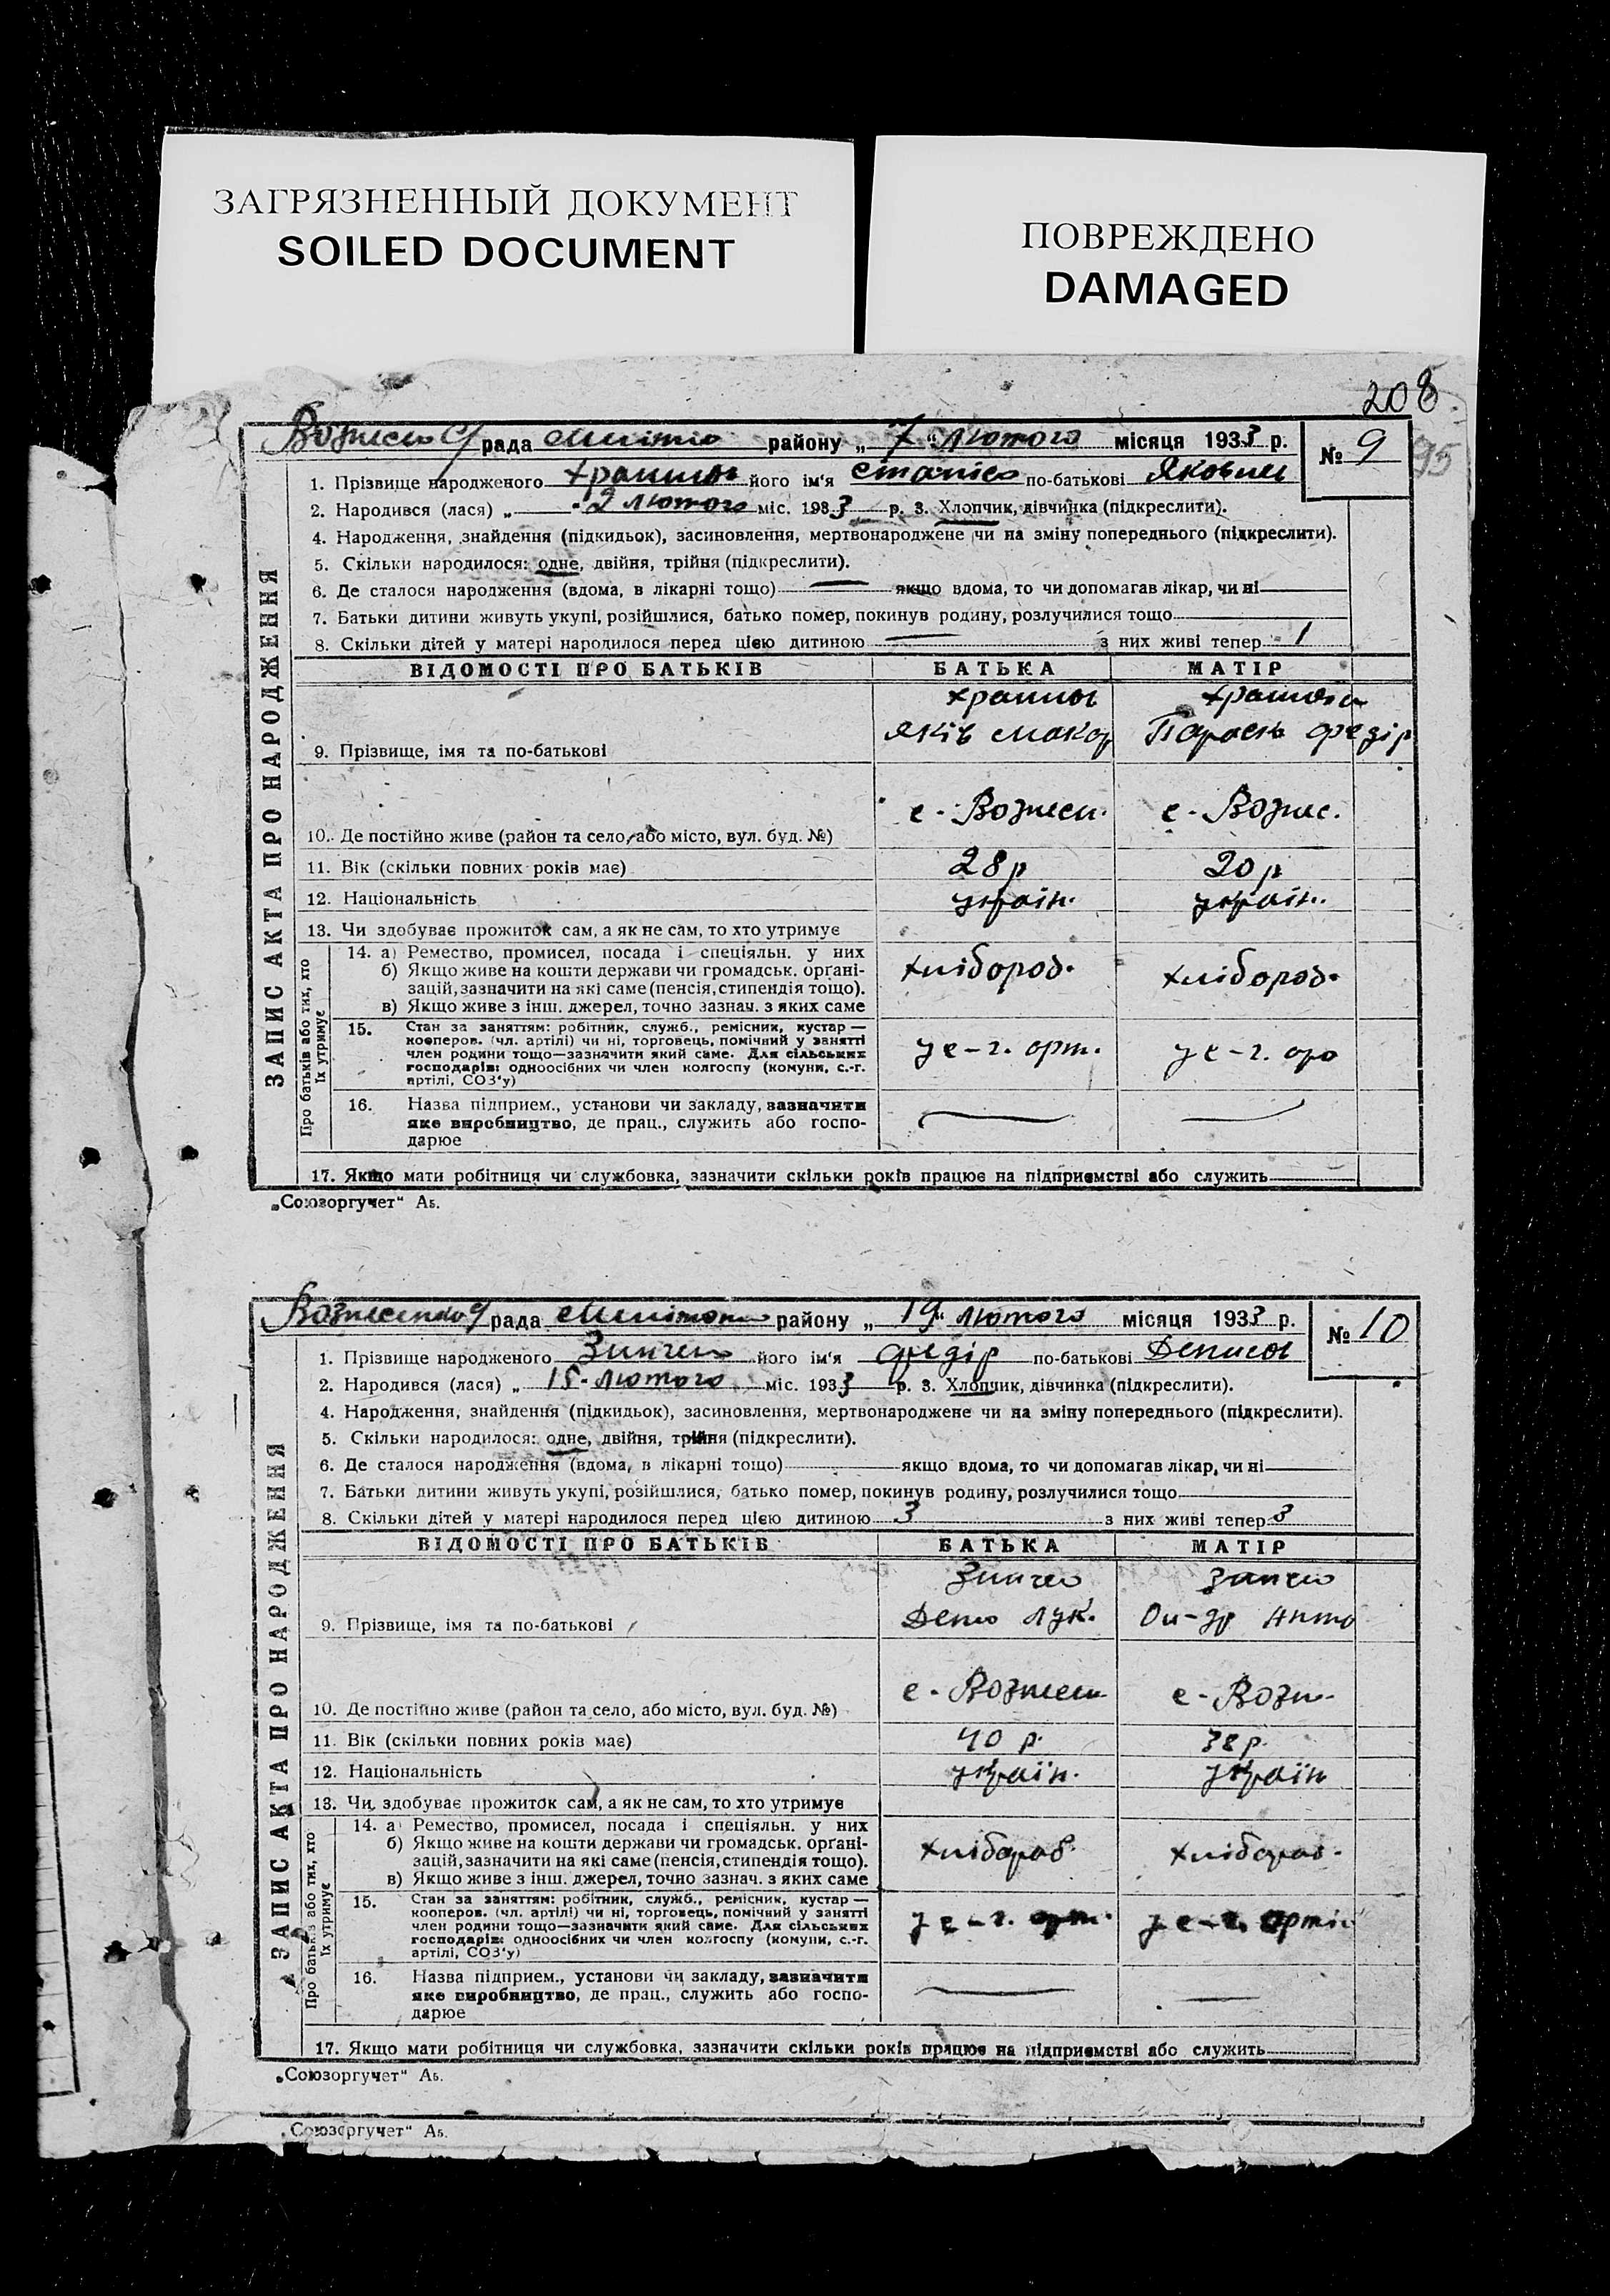 ЗАГРЯЗНЕННЫЙ ДОКУМЕНТ
SOILED DOCUMENT
ПОВРЕЖДЕНО
DAMAGED
208
95
рада району „7“ лютого місяця 1933 р. № 9
1. Прізвище народженого його ім'я по-батькові
2. Народився (лася) „ 2 лютого міс. 1933 р. 3. Хлопчик, дівчинка (підкреслити).
4. Народження, знайдення (підкидьок), засиновлення, мертвонароджене чи на зміну попереднього (підкреслити).
5. Скільки народилося: одне, двійня, трійня (підкреслити).
6. Де сталося народження (вдома, в лікарні тощо) якщо вдома, то чи допомагав лікар, чи ні
7. Батьки дитини живуть укупі, розійшлися, батько помер, покинув родину, розлучилися тощо
8. Скільки дітей у матері народилося перед цією дитиною — з них живі тепер 1
ВІДОМОСТІ ПРО БАТЬКІВ БАТЬКА МАТІР
9. Прізвище, імя та по-батькові Яків Макар
10. Де постійно живе (район та село, або місто, вул. буд. №) с-Вознесен. с-Вознес.
11. Вік (скільки повних років має) 28 р 20 р
12. Національність україн. україн.
13. Чи здобуває прожиток сам, а як не сам, то хто утримує
14. а) Ремество, промисел, посада і спеціяльн. у них
б) Якщо живе на кошти держави чи громадськ. органі-
зацій, зазначити на які саме (пенсія, стипендія тощо).
в) Якщо живе з інш. джерел, точно зазнач. з яких саме
хлібороб. хлібороб.
15. Стан за заняттям: робітник, служб., ремісник, кустар —
кооперов. (чл. артілі) чи ні, торговець, помічний у занятті
член родини тощо—зазначити який саме. Для сільських
господарів: одноосібних чи член колгоспу (комуни, с.-г.
артілі, СОЗ'у)
у с-г. арт. у с-г. ар
16. Назва підприєм., установи чи закладу, зазначити
яке виробництво, де прац., служить або госпо-
дарює
17. Якщо мати робітниця чи службовка, зазначити скільки років працює на підприємстві або служить
ЗАПИС АКТА ПРО НАРОДЖЕННЯ
Про батьків або тих, хто
їх утримує
„Союзоргучет“ Аб.
рада району „19“ лютого місяця 1933 р. № 10
1. Прізвище народженого його ім'я Федір по-батькові
2. Народився (лася) „ 15 лютого міс. 1933 р. 3. Хлопчик, дівчинка (підкреслити).
4. Народження, знайдення (підкидьок), засиновлення, мертвонароджене чи на зміну попереднього (підкреслити).
5. Скільки народилося: одне, двійня, трійня (підкреслити).
6. Де сталося народження (вдома, в лікарні тощо) якщо вдома, то чи допомагав лікар, чи ні
7. Батьки дитини живуть укупі, розійшлися, батько помер, покинув родину, розлучилися тощо
8. Скільки дітей у матері народилося перед цією дитиною 3 з них живі тепер 3
ВІДОМОСТІ ПРО БАТЬКІВ БАТЬКА МАТІР
9. Прізвище, імя та по-батькові Лук.
10. Де постійно живе (район та село, або місто, вул. буд. №) с-Вознесен с-Возн-
11. Вік (скільки повних років має) 40 р. 38 р.
12. Національність україн. україн
13. Чи здобуває прожиток сам, а як не сам, то хто утримує
14. а) Ремество, промисел, посада і спеціяльн. у них
б) Якщо живе на кошти держави чи громадськ. органі-
зацій, зазначити на які саме (пенсія, стипендія тощо).
в) Якщо живе з інш. джерел, точно зазнач. з яких саме
хлібороб. хлібороб.
15. Стан за заняттям: робітник, служб., ремісник, кустар —
кооперов. (чл. артілі) чи ні, торговець, помічний у занятті
член родини тощо—зазначити який саме. Для сільських
господарів: одноосібних чи член колгоспу (комуни, с.-г.
артілі, СОЗ'у)
у с-г. арт. у с-г. артіл
16. Назва підприєм., установи чи закладу, зазначити
яке виробництво, де прац., служить або госпо-
дарює
17. Якщо мати робітниця чи службовка, зазначити скільки років працює на підприємстві або служить
ЗАПИС АКТА ПРО НАРОДЖЕННЯ
Про батьків або тих, хто
їх утримує
„Союзоргучет“ Аб.
„Союзоргучет“ Аб.